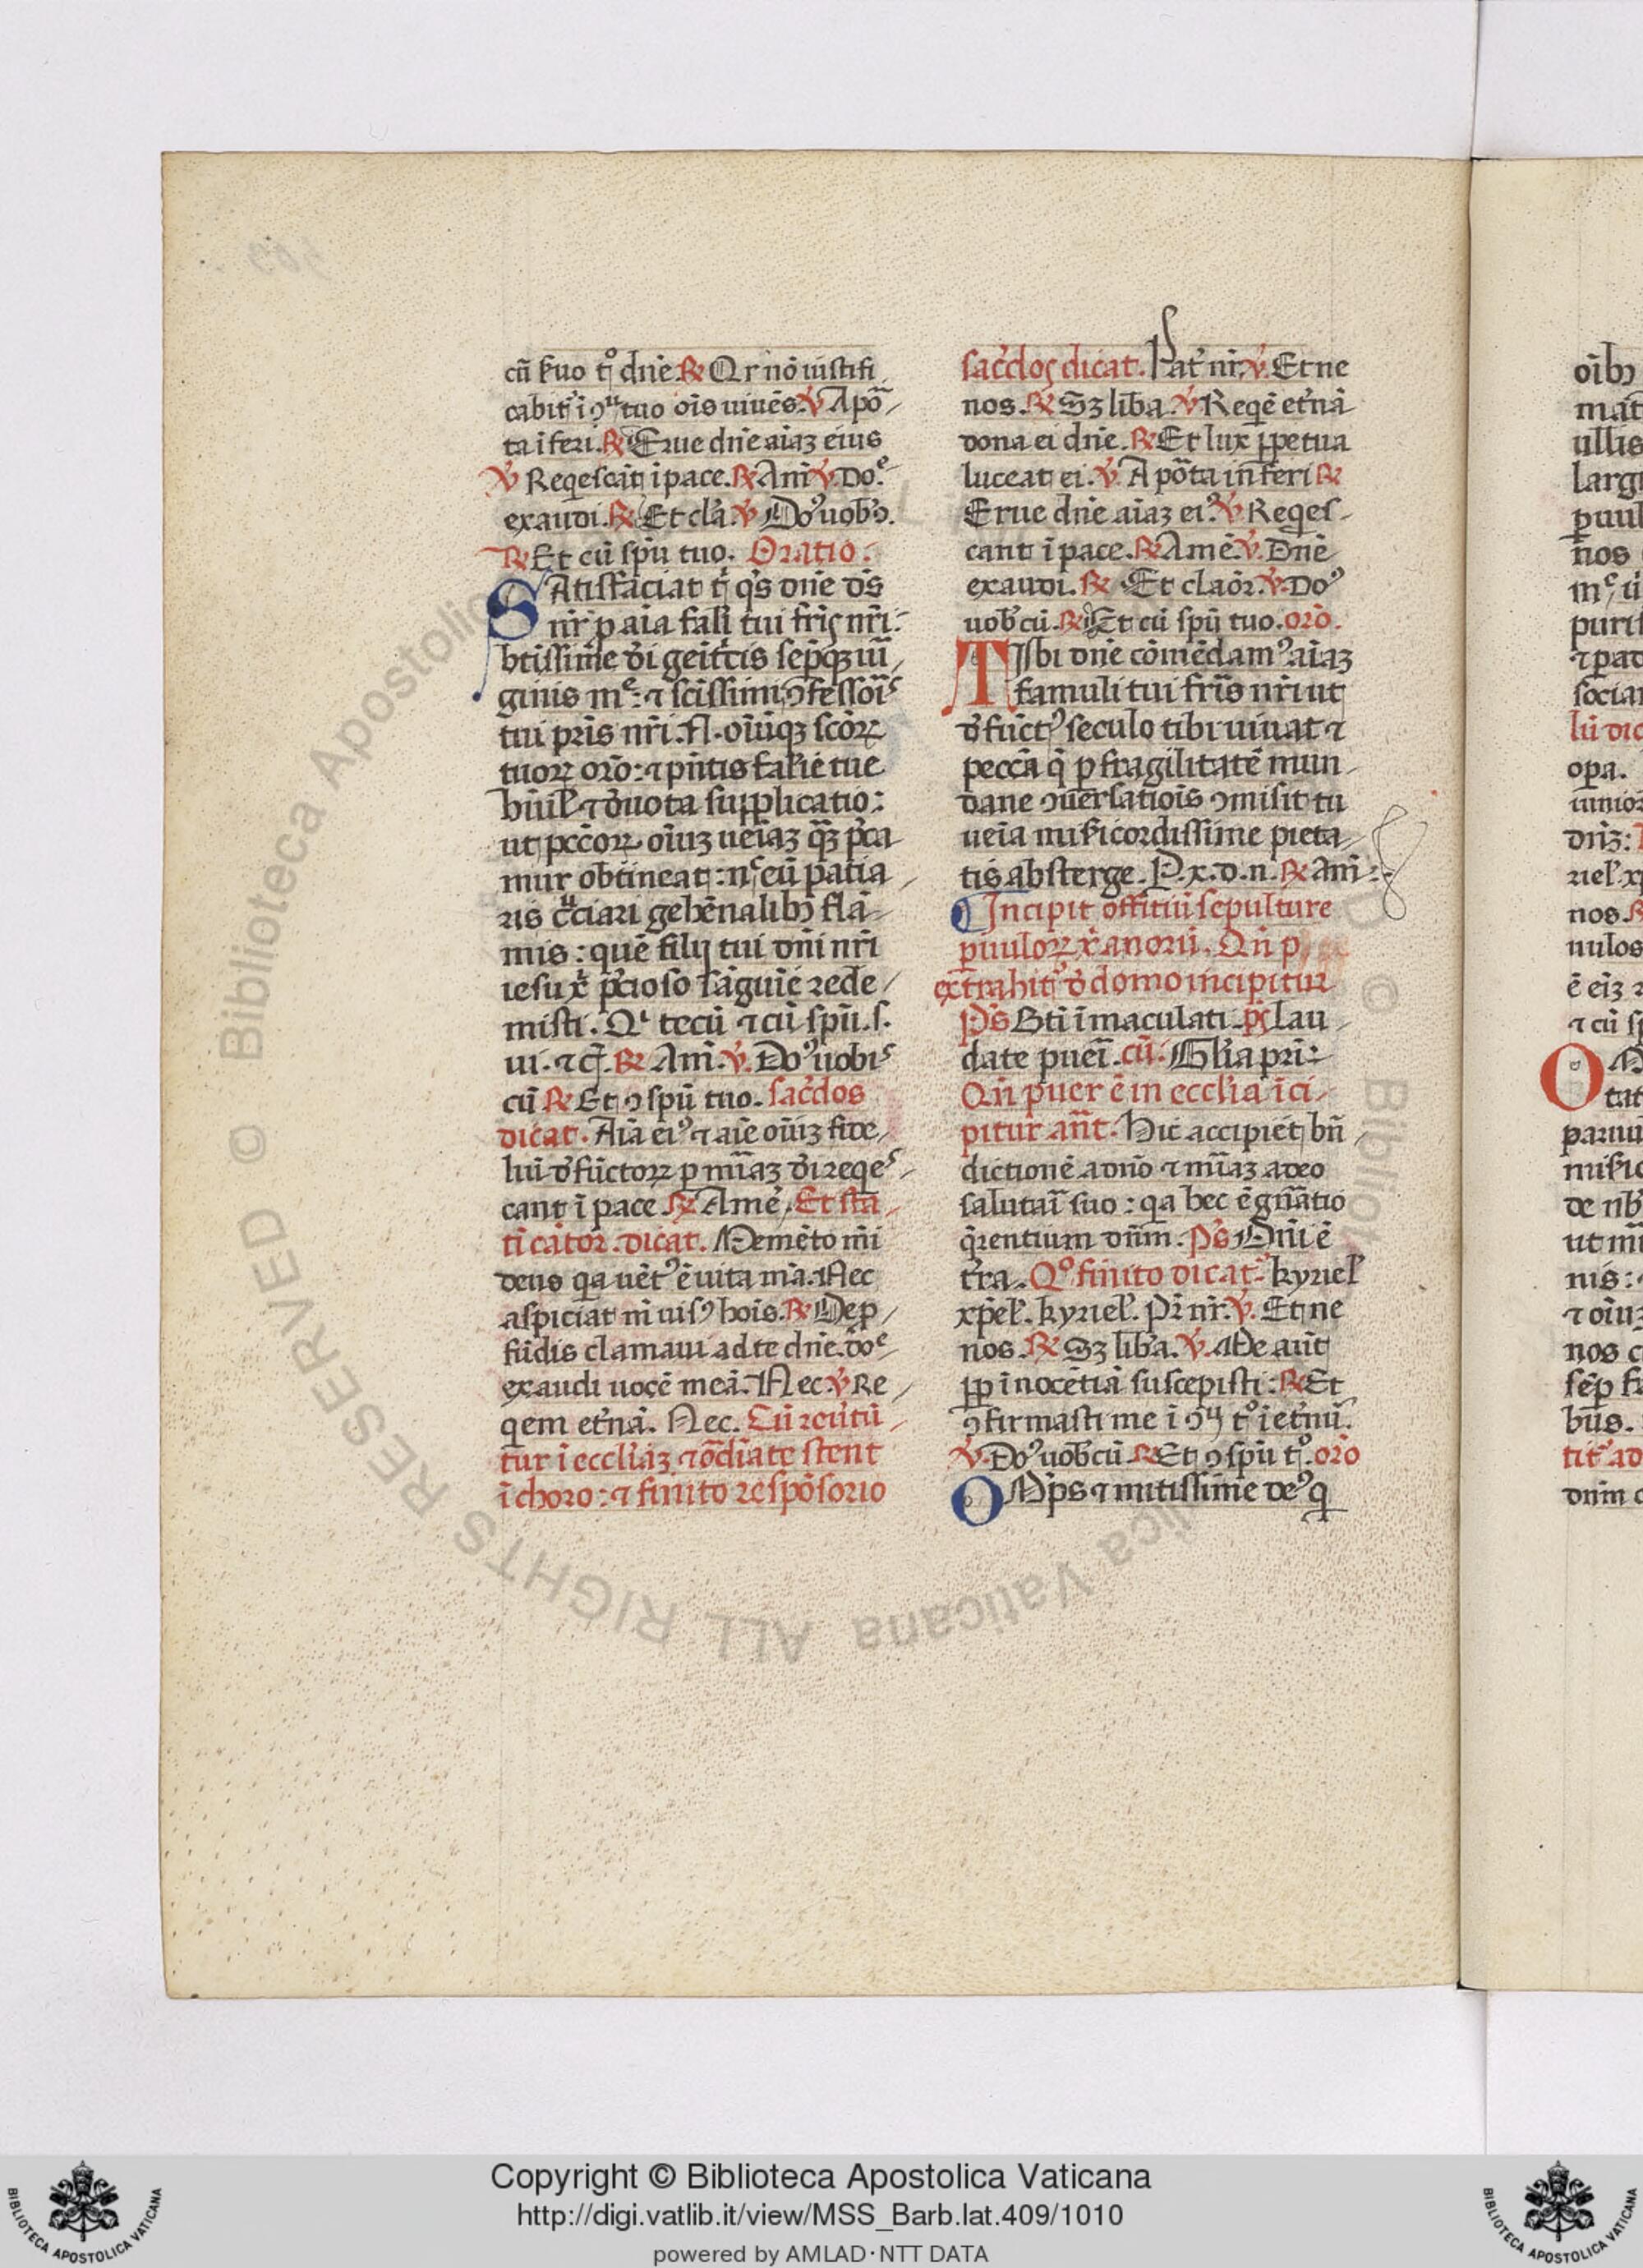 cū ẜuo tͦ dn̄e ℟ Qr nō iustifi
cabit᷒ ī ꝯͧtuo oīs uiuēs. ℣ Apō
ta īferi. ℟ Erue dn̄e aīaꝫ eius
℣ Reqescāt ī pace. ℟ Am̄ ℣. Doᵉ
exaudi. ℟ Et cla᷒. ℣ Do᷒uobꝰ.
℟ Et cū sp̄u tuo. Oratio.
SAtisfaciat t̄ qs̄ dn̄e ds̄
nr̄ ꝑ aīa fal̄i tui fr̄is nr̄i:
btīssime dī geīt͛cis semꝑqꝫ uī
ginis mᵉ: ⁊ sc̄issimi ꝯfessoīˢ
tui pr̄is nr̄i. N. oīuqꝫ sc̄oꝝ
tuoꝝ orō: ⁊ pn̄tis fal̄ie tue
hūil̄ ⁊ d̄uota supplicatio:
ut pcc̄oꝝ oīuꝫ ueīaꝫ qꝫ p̄ca
mur obtīneat: nᶜ eū patia
ris c͛ciari gehēnalibꝫ flā
mis: quē filij tui dn̄i nr̄i
iesu xp̄i p̄cioso sāguīe rede
misti. Qͥ tecū ⁊ cū sp̄u. s.
ui. ⁊ r̄. ℟ Am̄. ℣. Do᷒uobiˢ
cū ℟ Et ꝯ sp̄u tuo. sac͛dos
dicat. Aīa eiꝰ ⁊ aīe oīuꝫ fide
liū d̄fūctoꝝ ꝑ mīaꝫ dī reqeˢ
cant ī pace ℟ Amē. Et sta
tī cātor. dicat. Memēto m̄i
deus qa uēt᷒ ē uita mā. Nec
aspiciat m̄ uisꝰ hoīs. ℟ De ꝓ
fūdis clamaui ad te dn̄e. doᵉ
exaudi uocē meā. Nec ℣ Re
qem et͛nā. Nec. Cū reūtū
tur ī eccl̄iaꝫ ⁊ ōdīate stent
ī choro: ⁊ finito respōsorio
sac͛dos dicat. Pat͛ nr̄. ℣. Et ne
nos. ℟ Sꝫ lib͛a. ℣ Reqē et͛nā
dona ei dn̄e. ℟ Et lux ꝑpetua
luceat ei. ℣. A pōta inferi ℟
Erue dn̄e aīaꝫ eiꝰ ℣ Reqes
cant ī pace. ℟ Amē. ℣. Dn̄e
exaudi. ℟ Et claōr. ℣. Doꝰ
uob̄cū. ℟ Et cū sp̄u tuo. orō.
TIbi dn̄e cōmēdamꝰ aīaꝫ
famuli tui fr̄is nr̄i ut
d̄fūctꝰ seculo tibi uiuat ⁊
peccā q̄ ꝑ fragilitatē mun
dane ꝯuersatiois ꝯmisit tu
ueīa miẜicordissime pieta
tis absterge. P. x. d. n. ℟ Am̄.
¶ Incipit offitiū sepulture
ꝑuuloꝝ xp̄ianorū. Qn̄ p
extrahit᷒ d̄ domo incipitur
ps̄ Bt̄i īmaculati. ps̄ lau
date pueī. cū. Gl̄ia pr̄i:
Qn̄ puer ē in eccl̄ia īci
pitur an̄t. Hic accipiet bn̄
dictionē a dn̄o ⁊ mīaꝫ a deo
salutaī suo: qa hec ē gn̄atio
q̄rentium dn̄m. ps̄ Dn̄i ē
t͛ra. Qͦ finito dicat᷒ kyriel̄
xp̄el̄. kyriel̄. Pr̄ nr̄. ℣. Et ne
nos. ℟ Sꝫ lib͛a. ℣. Me aūt
ꝓp īnocētiā suscepisti: ℟ Et
ꝯfirmasti me ī ꝯͧ tͦ ī et͛nū.
℣. Do᷒uob̄cū ℟ Et ꝯ sp̄u tͦ. orō
OMp̄s ⁊ mitissime deꝰ q̄
Copyright © Biblioteca Apostolica Vaticana
http://digi.vatlib.it/view/MSS_Barb.lat.409/1010
powered by AMLAD·NTT DATA